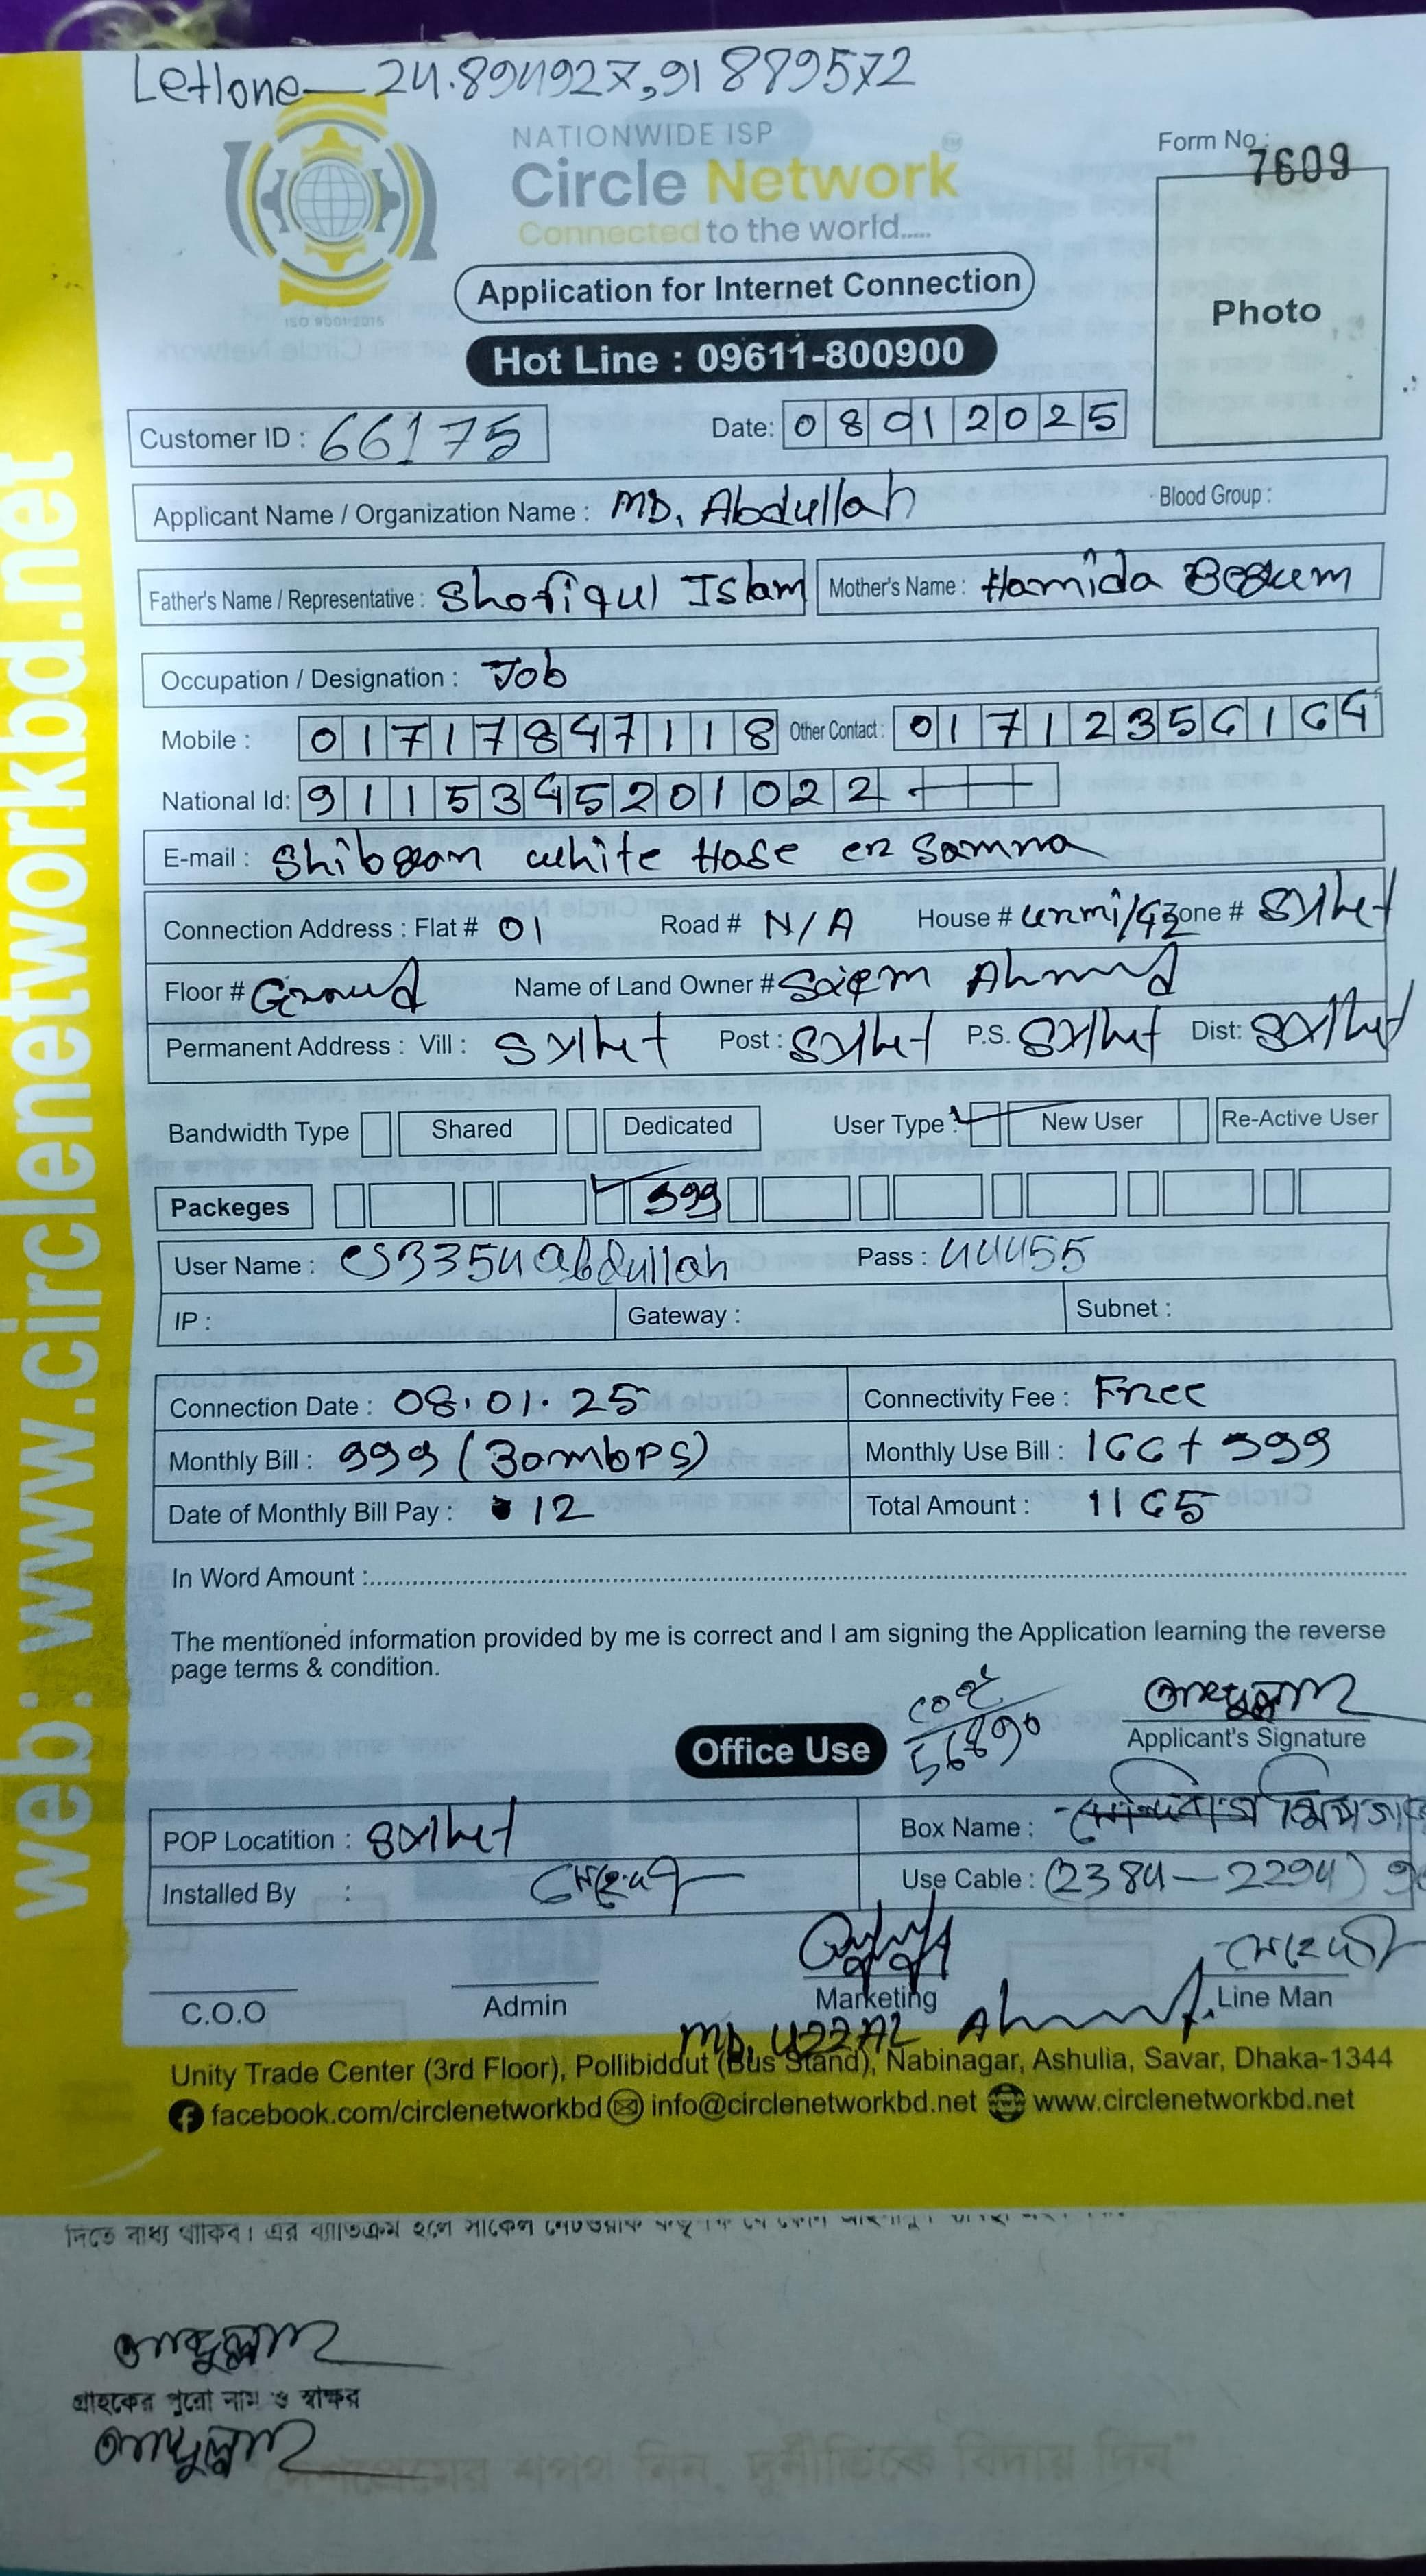 Letlone — 24.894927,91889572
NATIONWIDE ISP
Circle Network
Connected to the world.....
ISO 9001:2015
Form No.: 7609
Photo
Application for Internet Connection
Hot Line : 09611-800900
Customer ID : 66175 Date: 08012025
Applicant Name / Organization Name : MD. Abdullah Blood Group :
Father's Name / Representative : Shofiqul Islam Mother's Name : Hamida Begum
Occupation / Designation : Job
Mobile : 01717847118 Other Contact : 01712356164
National Id: 9115345201022
E-mail : white Hase
Connection Address : Flat # 01 Road # N/A House # Zone # Sylhet
Floor # Ground Name of Land Owner # Ahmed
Permanent Address : Vill : Sylhet Post : Sylhet P.S. Sylhet Dist: Sylhet
Bandwidth Type Shared Dedicated User Type : New User Re-Active User
Packeges 999
User Name : cs3354abdullah Pass : 44455
IP : Gateway : Subnet :
Connection Date : 08.01.25 Connectivity Fee : Free
Monthly Bill : 999 (30mbps) Monthly Use Bill : 166+999
Date of Monthly Bill Pay : 12 Total Amount : 1165
In Word Amount :
The mentioned information provided by me is correct and I am signing the Application learning the reverse
page terms & condition.
আব্দুল্লাহ
Applicant's Signature
Office Use
POP Locatition : Sylhet Box Name :
Installed By : Use Cable : (2384 — 2294)
C.O.O Admin Marketing Line Man
MD. UZZAL Ahmed.
Unity Trade Center (3rd Floor), Pollibiddut (Bus Stand), Nabinagar, Ashulia, Savar, Dhaka-1344
facebook.com/circlenetworkbd info@circlenetworkbd.net www.circlenetworkbd.net
web: www.circlenetworkbd.net
দিতে বাধ্য থাকিব। এর ব্যতিক্রম হলে সার্কেল নেটওয়ার্ক
আব্দুল্লাহ
গ্রাহকের পুরো নাম ও স্বাক্ষর
আব্দুল্লাহ